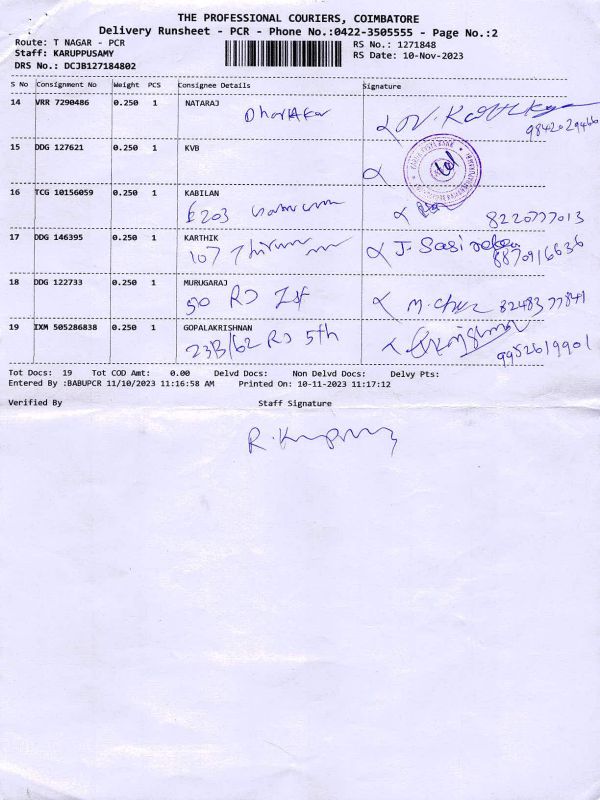 THE PROFESSIONAL COURIERS, COIMBATORE
Delivery Runsheet - PCR - Phone No.:0422-3505555 - Page No.:2
Route: T NAGAR - PCR
RS No.: 1271848
Staff: KARUPPUSAMY
RS Date: 10-Nov-2023
DRS No.: DCJB127184802
S No Consignment No Weight PCS Consignee Details Signature
14 VRR 7290486 0.250 1 NATARAJ
9842029466
15 DDG 127621 0.250 1 KVB
16 TCG 10156059 0.250 1 KABILAN
E203
8220777013
17 DDG 146395 0.250 1 KARTHIK
107 J. Sasi
8870916636
18 DDG 122733 0.250 1 MURUGARAJ
50 RJ 1st M. 8248377841
19 IXM 505286838 0.250 1 GOPALAKRISHNAN
23B/62 RJ 5th
9952619901
Tot Docs: 19 Tot COD Amt: 0.00 Delvd Docs: Non Delvd Docs: Delvy Pts:
Entered By :BABUPCR 11/10/2023 11:16:58 AM Printed On: 10-11-2023 11:17:12
Verified By Staff Signature